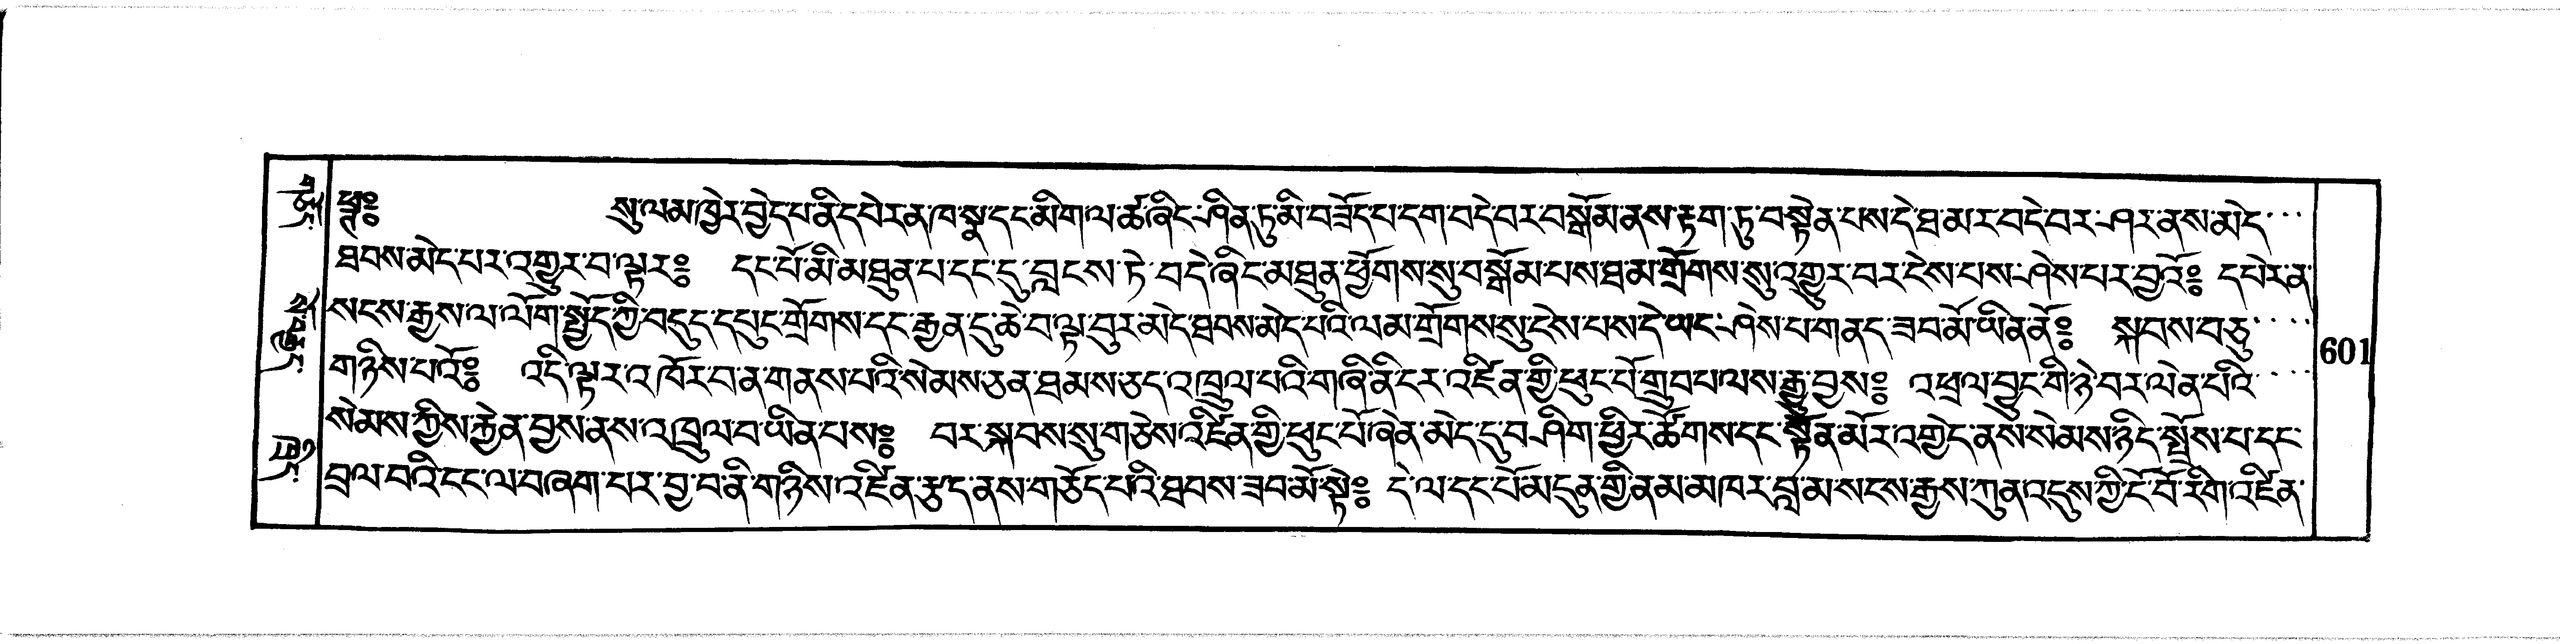 ཕྲཿ སུ་ལམ་ཁྱེར་བྱེད་པ་ནི་དཔེར་ན་ཁ་སྣ་དང་མིག་ལ་ཚ་ཞིང་ཤིན་ཏུ་མི་བཟོད་པ་དག་བདེ་བར་བསྒོམ་ནས་རྟག་ཏུ་བསྟེན་པས་དེ་ཐ་མར་བདེ་བར་ཤར་ནས་མེད་
ཐབས་མེད་པར་འགྱུར་བ་ལྟརཿ དང་པོ་མི་མཐུན་པ་དང་དུ་བླངས་ཏེ་བདེ་ཞིང་མཐུན་ཕྱོགས་སུ་བསྒོམ་པས་ཐ་མ་གྲོགས་སུ་འགྱུར་བར་ངེས་པས་ཤེས་པར་བྱའོཿ དཔེར་ན་
སངས་རྒྱས་ལ་ལོག་སྤྱོད་ཀྱི་བདུད་དཔུང་གྲོགས་དང་རྒྱན་དུ་ཆེ་བ་ལྟ་བུར་མེད་ཐབས་མེད་པའི་ལམ་གྲོགས་སུ་ངེས་པས་དེ་ཡང་ཤེས་པ་གནད་ཟབ་མོ་ཡིན་ནོཿ སྐབས་བཅུ་
གཉིས་པའོཿ འདི་ལྟར་འཁོར་བ་ན་གནས་པའི་སེམས་ཅན་ཐམས་ཅད་འཁྲུལ་པའི་གཞི་ནི་ངར་འཛིན་གྱི་ཕུང་པོ་གྲུབ་པ་ལས་རྒྱུ་བྱསཿ འཕྲལ་བྱུང་གི་ཉེ་བར་ལེན་པའི་
སེམས་ཀྱིས་རྐྱེན་བྱས་ནས་འཁྲུལ་བ་ཡིན་པསཿ བར་སྐབས་སུ་གཅེས་འཛིན་གྱི་ཕུང་པོ་ཞེན་མེད་དུ་བཤིག་ཕྱིར་ཚོགས་དང་སྟོན་མོར་འགྱེད་ནས་སེམས་ཉིད་སྤྲོས་པ་དང་
བྲལ་བའི་ངང་ལ་བཞག་པར་བྱ་བ་ནི་གཉིས་འཛིན་རྩད་ནས་གཅོད་པའི་ཐབས་ཟབ་མོ་སྟེཿ དེ་ལ་དང་པོ་མདུན་གྱི་ནམ་མཁར་བླ་མ་སངས་རྒྱས་ཀུན་འདུས་ཀྱི་ངོ་བོ་རིག་འཛིན་
601